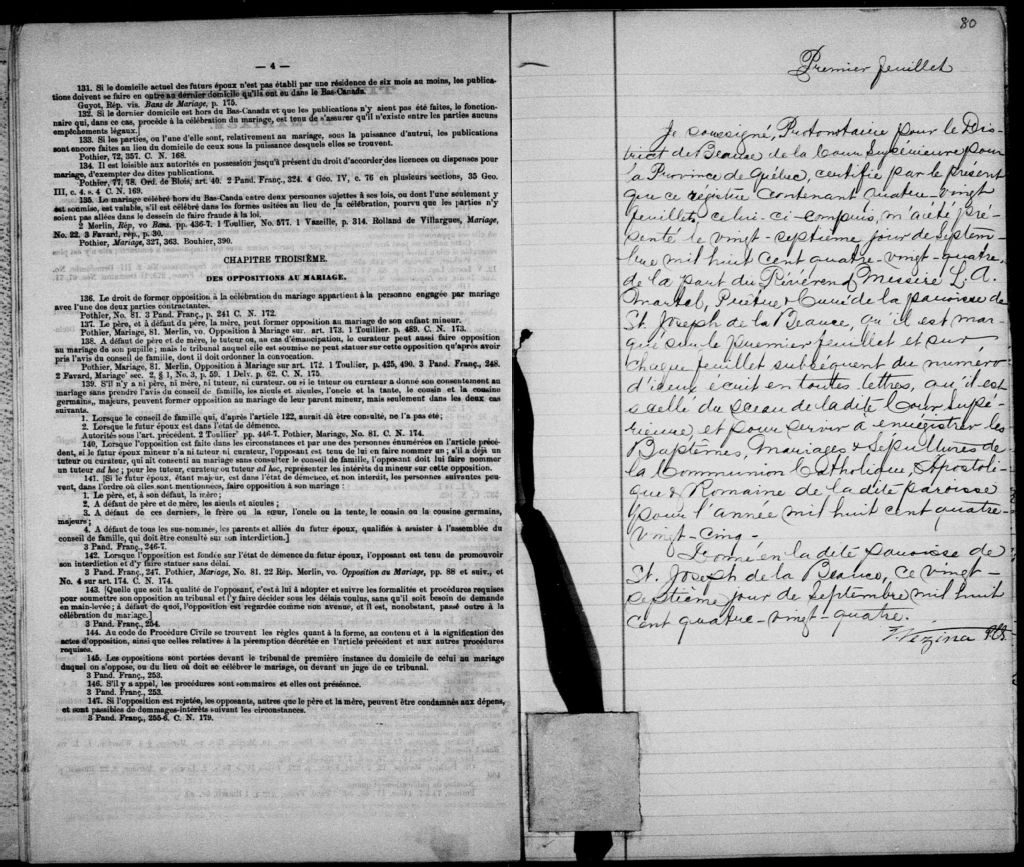 — 4 —
131. Si le domicile actuel des futurs époux n'est pas établi par une résidence de six mois au moins, les publica-
tions doivent se faire en outre au dernier domicile qu'ils ont eu dans le Bas-Canada.
Guyot, Rép. vis. Bans de Mariage, p. 175.
132. Si le dernier domicile est hors du Bas-Canada et que les publications n'y aient pas été faites, le fonction-
naire qui, dans ce cas, procède à la célébration du mariage, est tenu de s'assurer qu'il n'existe entre les parties aucuns
empêchements légaux.]
133. Si les parties, ou l'une d'elle sont, relativement au mariage, sous la puissance d'autrui, les publications
sont encore faites au lieu du domicile de ceux sous la puissance desquels elles se trouvent.
Pothier, 72, 357. C. N. 168.
134. Il est loisible aux autorités en possession jusqu'à présent du droit d'accorder des licences ou dispenses pour
mariage, d'exempter des dites publications.
Pothier, 77, 78. Ord. de Blois, art. 40. 2 Pand. Franç., 324. 4 Geo. IV, c. 76 en plusieurs sections, 35 Geo.
III, c. 4. s. 4 C. N. 169.
135. Le mariage célébré hors du Bas-Canada entre deux personnes sujettes à ses lois, ou dont l'une seulement y
est soumise, est valable, s'il est célébré dans les formes usitées au lieu de la célébration, pourvu que les parties n'y
soient pas allées dans le dessein de faire fraude à la loi.
2 Merlin, Rép, vo Bans. pp. 436-7. 1 Toullier, No. 577. 1 Vazeille, p. 314. Rolland de Villargues, Mariage,
No. 22. 3 Favard, rép., p. 30.
Pothier, Mariage, 327, 363. Bouhier, 390.
CHAPITRE TROISIÈME.
DES OPPOSITIONS AU MARIAGE.
136. Le droit de former opposition à la célébration du mariage appartient à la personne engagée par mariage
avec l'une des deux parties contractantes.
Pothier, No. 81. 3 Pand. Franç., p. 241 C. N. 172.
137. Le père, et à défaut du père, la mère, peut former opposition au mariage de son enfant mineur.
Pothier, Mariage, 81. Merlin, vo. Opposition à Mariage sur. art. 173. 1 Touillier. p. 489. C. N. 173.
138. A défaut de père et de mère, le tuteur ou, au cas d'émancipation, le curateur peut aussi faire opposition
au mariage de son pupille ; mais le tribunal auquel elle est soumise ne peut statuer sur cette opposition qu'après avoir
pris l'avis du conseil de famille, dont il doit ordonner la convocation.
Pothier, Mariage, 81. Merlin, Opposition à Mariage sur art. 172. 1 Touillier, p. 425, 490. 3 Pand. Franç., 248.
2 Favard, Mariage' sec. 2, § 1, No. 3, p. 59. 1 Delv. p. 62. C. N. 175.
139. S'il n'y a ni père, ni mère, ni tuteur, ni curateur, ou si le tuteur ou curateur a donné son consentement au
mariage sans prendre l'avis du conseil de famille, les aïeuls et aïeules, l'oncle et la tante, le cousin et la cousine
germains,, majeurs, peuvent former opposition au mariage de leur parent mineur, mais seulement dans les deux cas
suivants.
1. Lorsque le conseil de famille qui, d'après l'article 122, aurait dû être consulté, ne l'a pas été ;
2. Lorsque le futur époux est dans l'état de démence.
Autorités sous l'art. précédent. 2 Toullier' pp. 446-7. Pothier, Mariage, No. 81. C. N. 174.
140. Lorsque l'opposition est faite dans les circonstances et par une des personnes énumérées en l'article précé-
dent, si le futur époux mineur n'a ni tuteur ni curateur, l'opposant est tenu de lui en faire nommer un ; s'il a déjà un
tuteur ou curateur, qui ait consenti au mariage sans consulter le conseil de famille, l'opposant doit lui faire nommer
un tuteur ad hoc ; pour les tuteur, curateur ou tuteur ad hoc, représenter les intérêts du mineur sur cette opposition.
141. [Si le futur époux, étant majeur, est dans l'état de démence, et non interdit, les personnes suivantes peu-
vent, dans l'ordre où elles sont mentionnées, faire opposition à son mariage :
1. Le père, et, à son défaut, la mère ;
2. A défaut de père et de mère, les aïeuls et aïeules ;
3. A défaut de ces derniers, le frère ou la sœur, l'oncle ou la tante, le cousin ou la cousine germains,
majeurs ;
4. A défaut de tous les sus-nommés, les parents et alliés du futur époux, qualifiés à assister à l'assemblée du
conseil de famille, qui doit être consulté sur son interdiction.]
3 Pand. Franç., 246-7.
142. Lorsque l'opposition est fondée sur l'état de démence du futur époux, l'opposant est tenu de promouvoir
son interdiction et d'y faire statuer sans délai.
3 Pand. Franç., 247. Pothier, Mariage, No. 81. 22 Rép. Merlin, vo. Opposition au Mariage, pp. 88 et suiv., et
No. 4 sur art. 174. C. N. 174.
143. [Quelle que soit la qualité de l'opposant, c'est à lui à adopter et suivre les formalités et procédures requises
pour soumettre son opposition au tribunal et l'y faire décider sous les délais voulus, sans qu'il soit besoin de demande
en main-levée ; à défaut de quoi, l'opposition est regardée comme non avenue, et il est, nonobstant, passé outre à la
célébration du mariage.]
3 Pand. Franç., 254.
144. Au code de Procédure Civile se trouvent les règles quant à la forme, au contenu et à la signification des
actes d'opposition, ainsi que celles relatives à la péremption décrétée en l'article précédent et aux autres procédures
requises.
145. Les oppositions sont portées devant le tribunal de première instance du domicile de celui au mariage
duquel on s'oppose, ou du lieu où doit se célébrer le mariage, ou devant un juge de ce tribunal.
3 Pand. Franç., 253.
146. S'il y a appel, les procédures sont sommaires et elles ont préséance.
3 Pand. Franç., 253.
147. Si l'opposition est rejetée, les opposants, autres que le père et la mère, peuvent être condamnés aux dépens,
et sont passibles de dommages-intérêts suivant les circonstances.
3 Pand. Franç., 255-6. C. N. 179.
80
Premier feuillet
Je soussigné, Protonotaire pour le Dis-
trict de Beauce de la Cour Supérieure pour
la Province de Québec, certifie par le présent
que ce régistre contenant quatre-vingt
feuillets, celui-ci compris, m'a été pré-
senté le vingt-septième jour de Septem-
bre mil huit cent quatre-vingt-quatre,
de la part du Révérend Messire L. A.
Martel, Prêtre & Curé de la paroisse de
St. Joseph de la Beauce, qu'il est mar-
qué sur le premier feuillet et sur
chaque feuillet subséquent du numéro
d'iceux écrit en toutes lettres, qu'il est
scellé du sceau de la dite Cour Supé-
rieure et pour servir à enregistrer les
Baptêmes, Mariages & Sépultures de
la Communion Catholique, Apostoli-
que & Romaine de la dite paroisse
pour l'année mil huit cent quatre-
vingt-cinq -
Donné en la dite paroisse de
St. Joseph de la Beauce, ce vingt-
septième jour de septembre mil huit
cent quatre-vingt-quatre.
Vézina